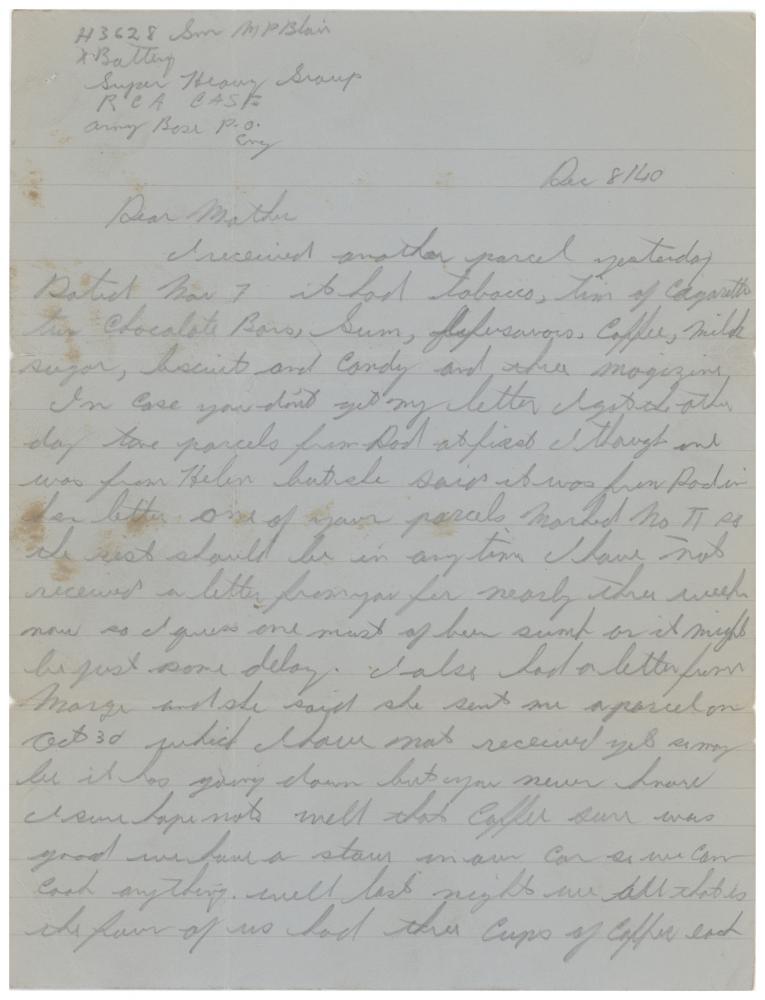 H3628 Gnr M P Blair
X Battery
Super Heavy Group
R C A C A S F
Army Base P.O.
Eng
Dec 8/40
Dear Mother
I received another parcel yesterday
Dated Nov 7 it had tobacco, tin of Cigaretts
two Chocolate Bars, Gum, Coffee, Milk
sugar, biscuits and Candy and three magizines
In Case you dont get my letter I got the other
day two parcels from Dad at first I though one
was from Helen but she said it was from Dad in
her letter one of your parcels Marked No 11 so
the rest should be in any time I have not
received a letter from you for nearly three weeks
now so I guess one must of been sunk or it might
be just some delay. I also had a letter from
Marge and she said she sent me a parcel on
Oct 30 which I have not received yet so may
be it has going down but you never know
I sure hope not well that Coffee sure was
good we have a stove in our Car so we Can
Cook anything. well last night we all that is
the four of us had three Cups of Coffee each